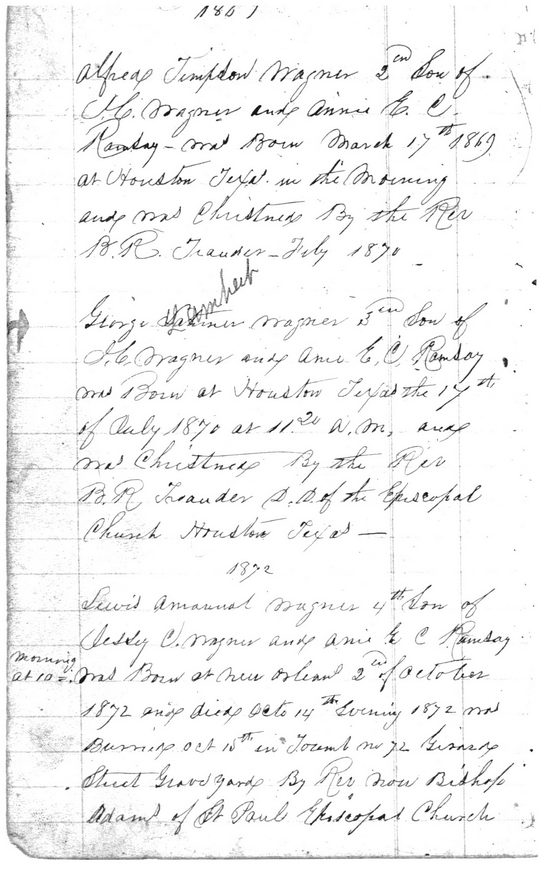 Alfred Timpson Wagner 2nd Son of
J. C. Wagner and Annie E. C.
Ramsay - was Born March 17th 1869
at Houston Texas. in the Morning
and was Christned By the Rev
B. R. Trauder - July 1870
George Wagner 3rd Son of
J. C. Wagner and Anie E. C. Ramsay
was Born at Houston Texas the 17th
of July 1870 at 11 20 A. M. and
was Christned By the Rev
B. R Trauder D. D of the Episcopal
Church Houston Texas —
1872
Lewis Amanual Wagner 4th Son of
Jessey C. Wagner and Anie E C Ramsay
morning
at 10 =. was Born at New Orleans 2nd of October
1872 and died Octo 14th Evening 1872 was
Burried Oct 15th in Toumb no 72 Girard
Street Grave yard By Rev now Bishop
Adams of St Pauls Episcopal Church